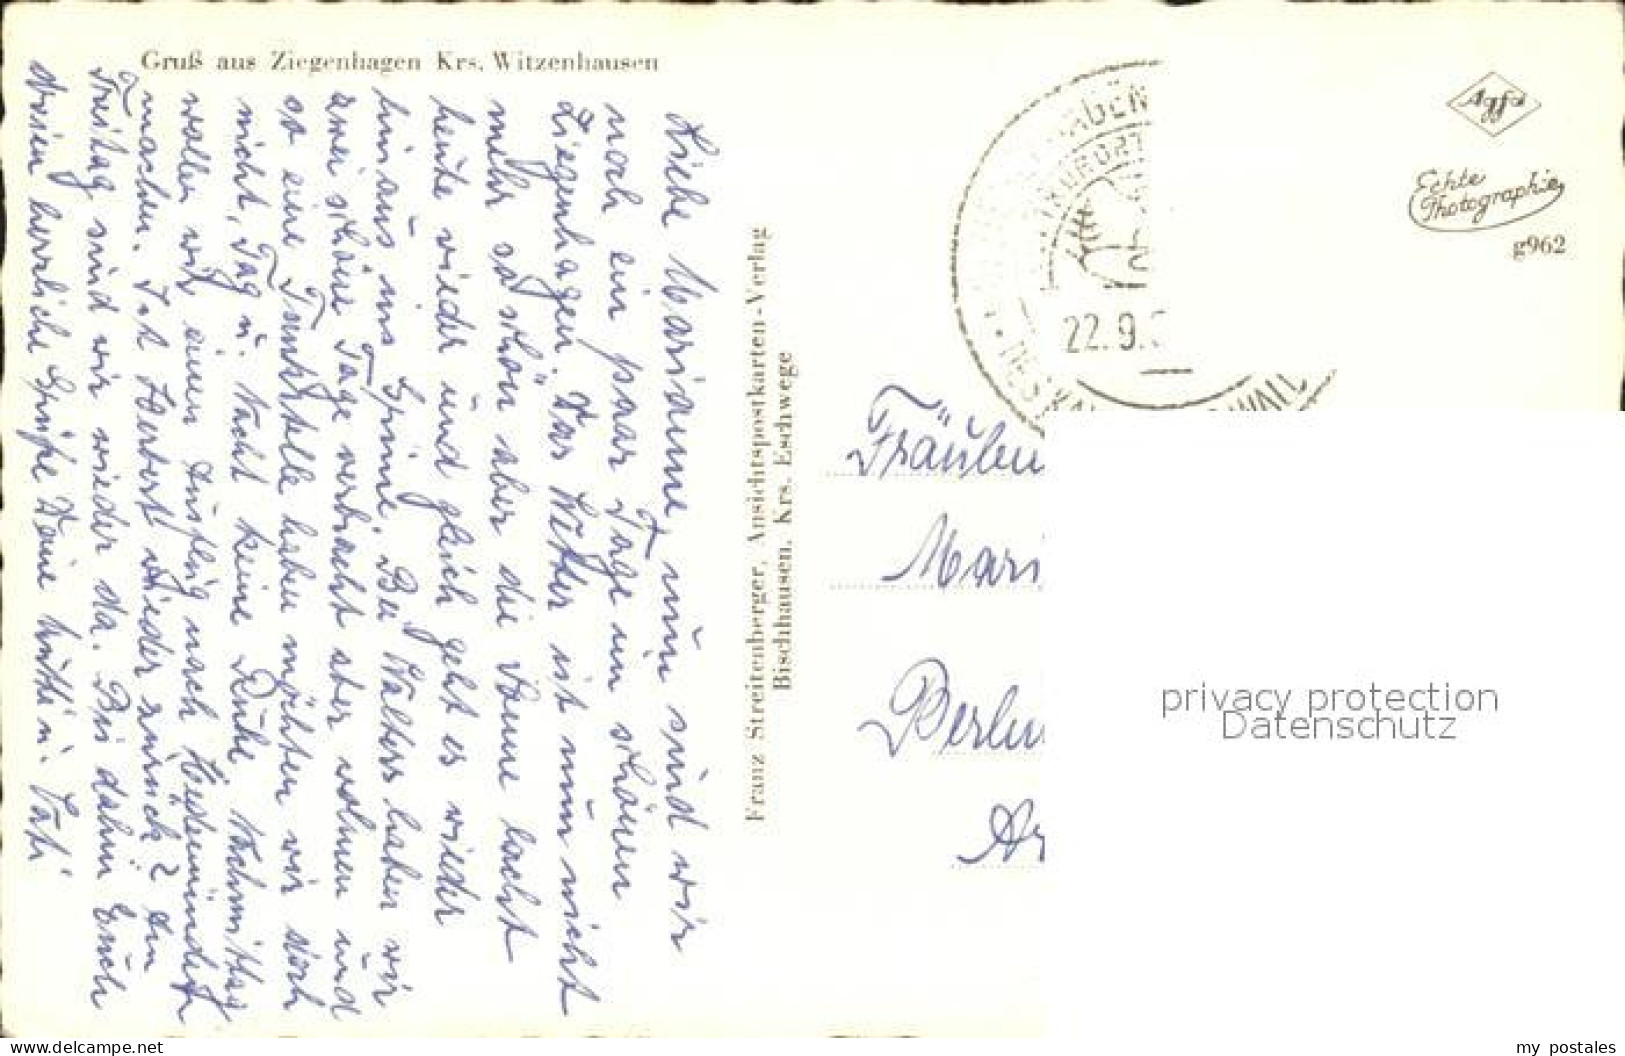 Gruß aus Ziegenhagen Krs. Witzenhausen
Liebe Marianne, nun sind wir
noch ein paar Tage im schönen
Ziegenhagen. Das Wetter ist nun nicht
mehr so schön aber die Sonne lacht
heute wieder und gleich geht es wieder
hinaus ins Grüne. Bei Walters haben wir
zwei schöne Tage verbracht aber wohnen und
ob eine Tankstelle haben möchten wir doch
nicht, Tag u. Nacht keine Ruhe. Nachmittag
wollen wir einen Ausflug nach Hedemünden
machen. Ist Herbert wieder zurück? Am
Freitag sind wir wieder da. Bis dahin Euch
allen herzliche Grüße Deine Mutti u. Vati
Franz Streitenberger, Ansichtspostkarten-Verlag
Bischhausen, Krs. Eschwege
22.9.
KURORT
Agfa
Echte
Photographie
g962
Fräulein
Mari
Berlin
privacy protection
Datenschutz
www.delcampe.net
my_postales